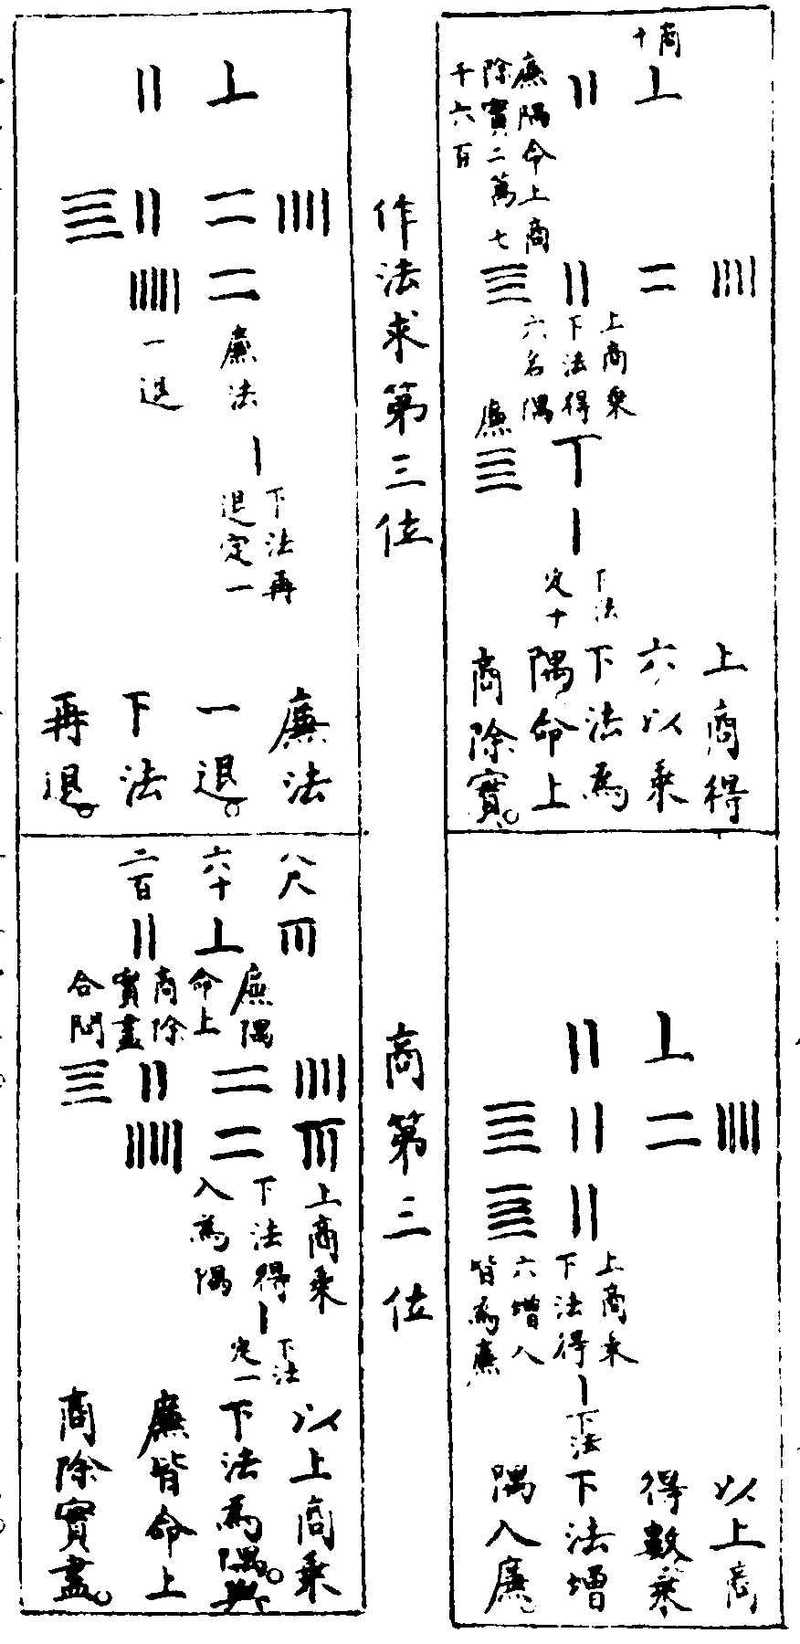 商
十
廉隅命上商
除實二萬七
千六百
上商乘
下法得
六名隅
廉
下法
定十
上商得
六以乘
下法為
隅命上
商除實。
上商乘
下法得
六增入
皆為廉
下法
以上商
得數乘
下法增
隅入廉。
作法求第三位
廉法
一退
下法再
退定一
廉法
一退。
下法
再退。
商第三位
八尺
六十
二百
廉隅
命上
商除
實盡
合問
上商乘
下法得
八為隅
下法
定一
以上商乘
下法為隅。與
廉皆命上
商除實盡。